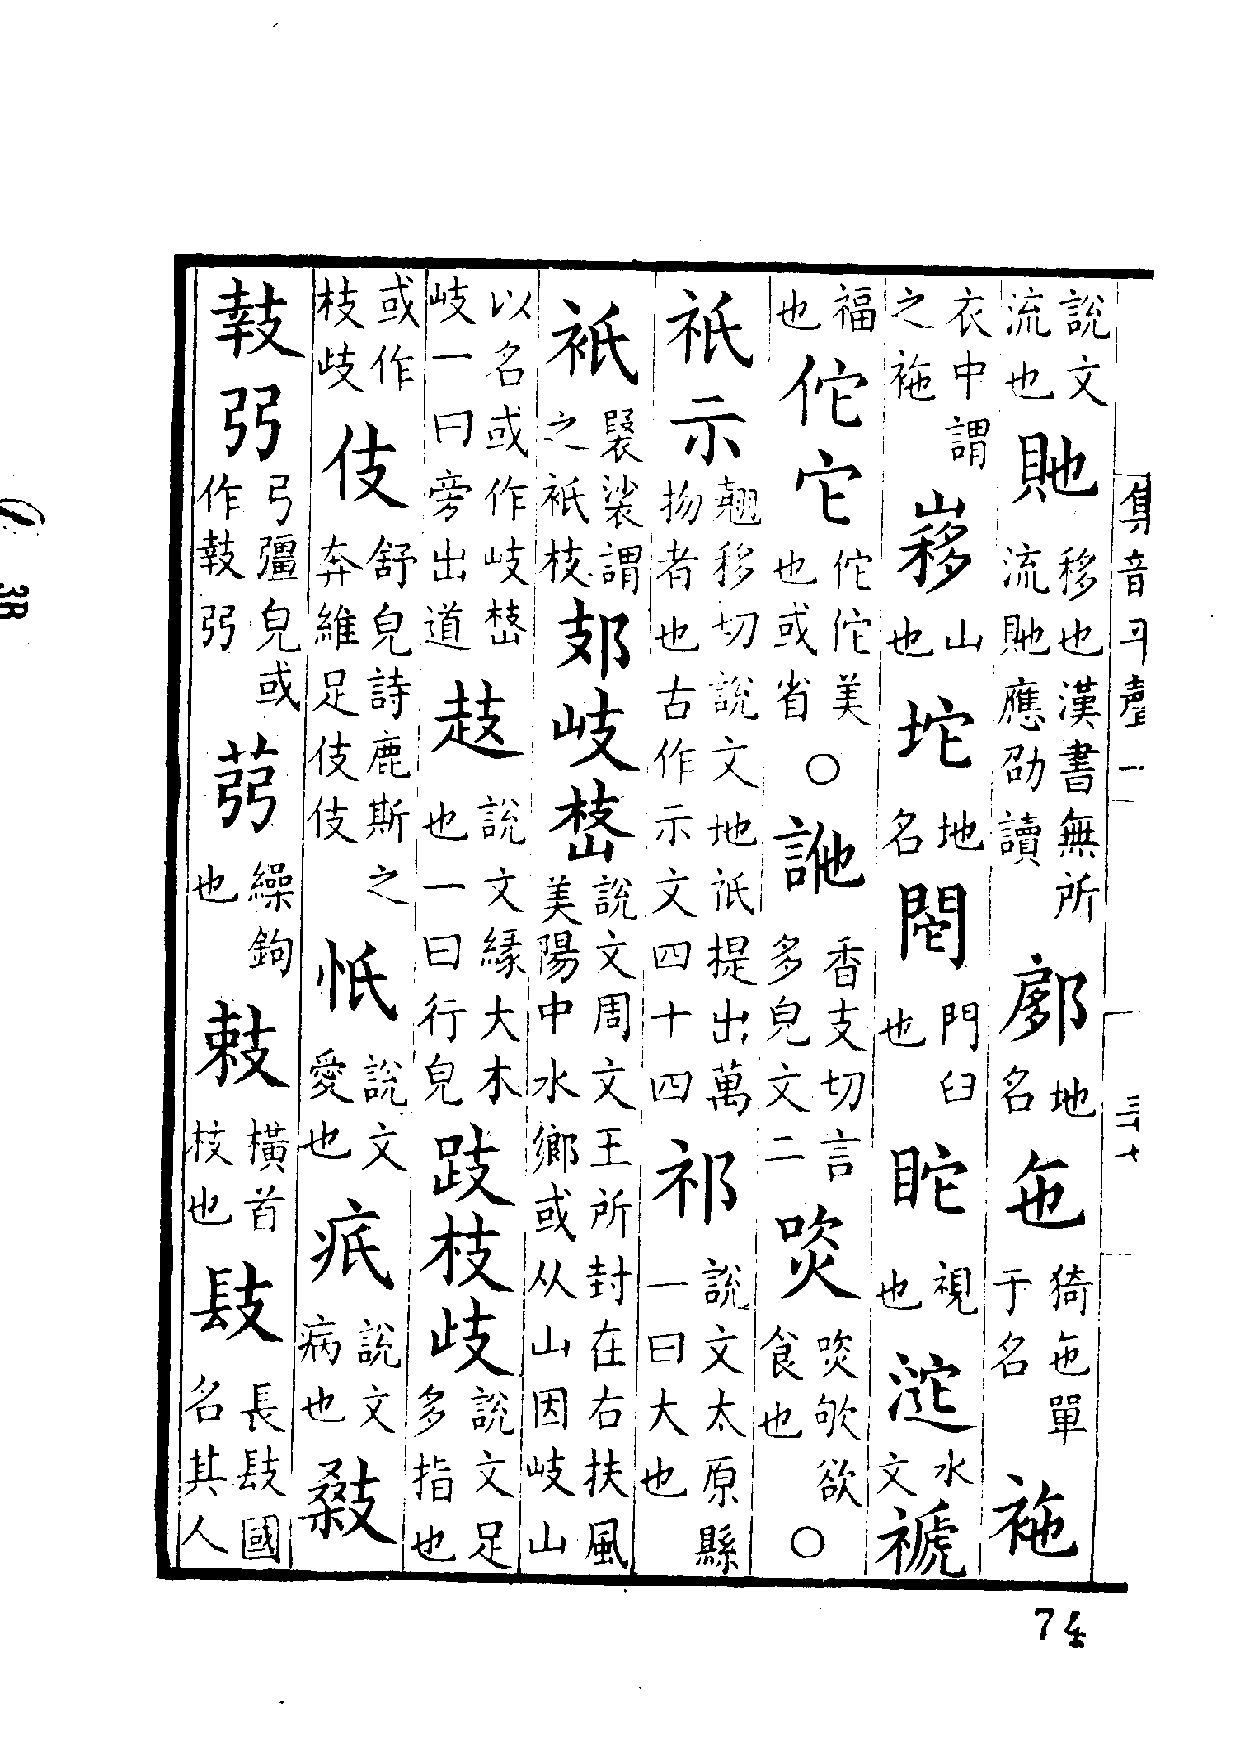 集音平聲一
三十七
說文流也貤移也漢書無所流貤應劭讀鄝地名㐌猗㐌單于名袘
衣中謂之袘㠢山也坨地名閐門臼也眈視也沱水文褫
福也佗它佗佗美也或省〇訑香支切言多皃文二㗛㗛欨欲食也〇
祇示翹移切說文地祇提出萬物者也古作示文四十四祁說文太原縣一曰大也
衹褧裟謂之衹枝䢋岐㟚說文周文王所封在右扶風美陽中水鄉或从山因岐山
以名或作岐㟚岐一曰旁出道䞚說文緣大木也一曰行皃跂枝歧說文足多指也
或作枝歧伎舒皃詩鹿斯之奔維足伎伎忯說文愛也疷說文病也㩽
㩼弜弓彊皃或作㩼弜䓔繰鉤也敊橫首枝也镹長镹國名其人
74